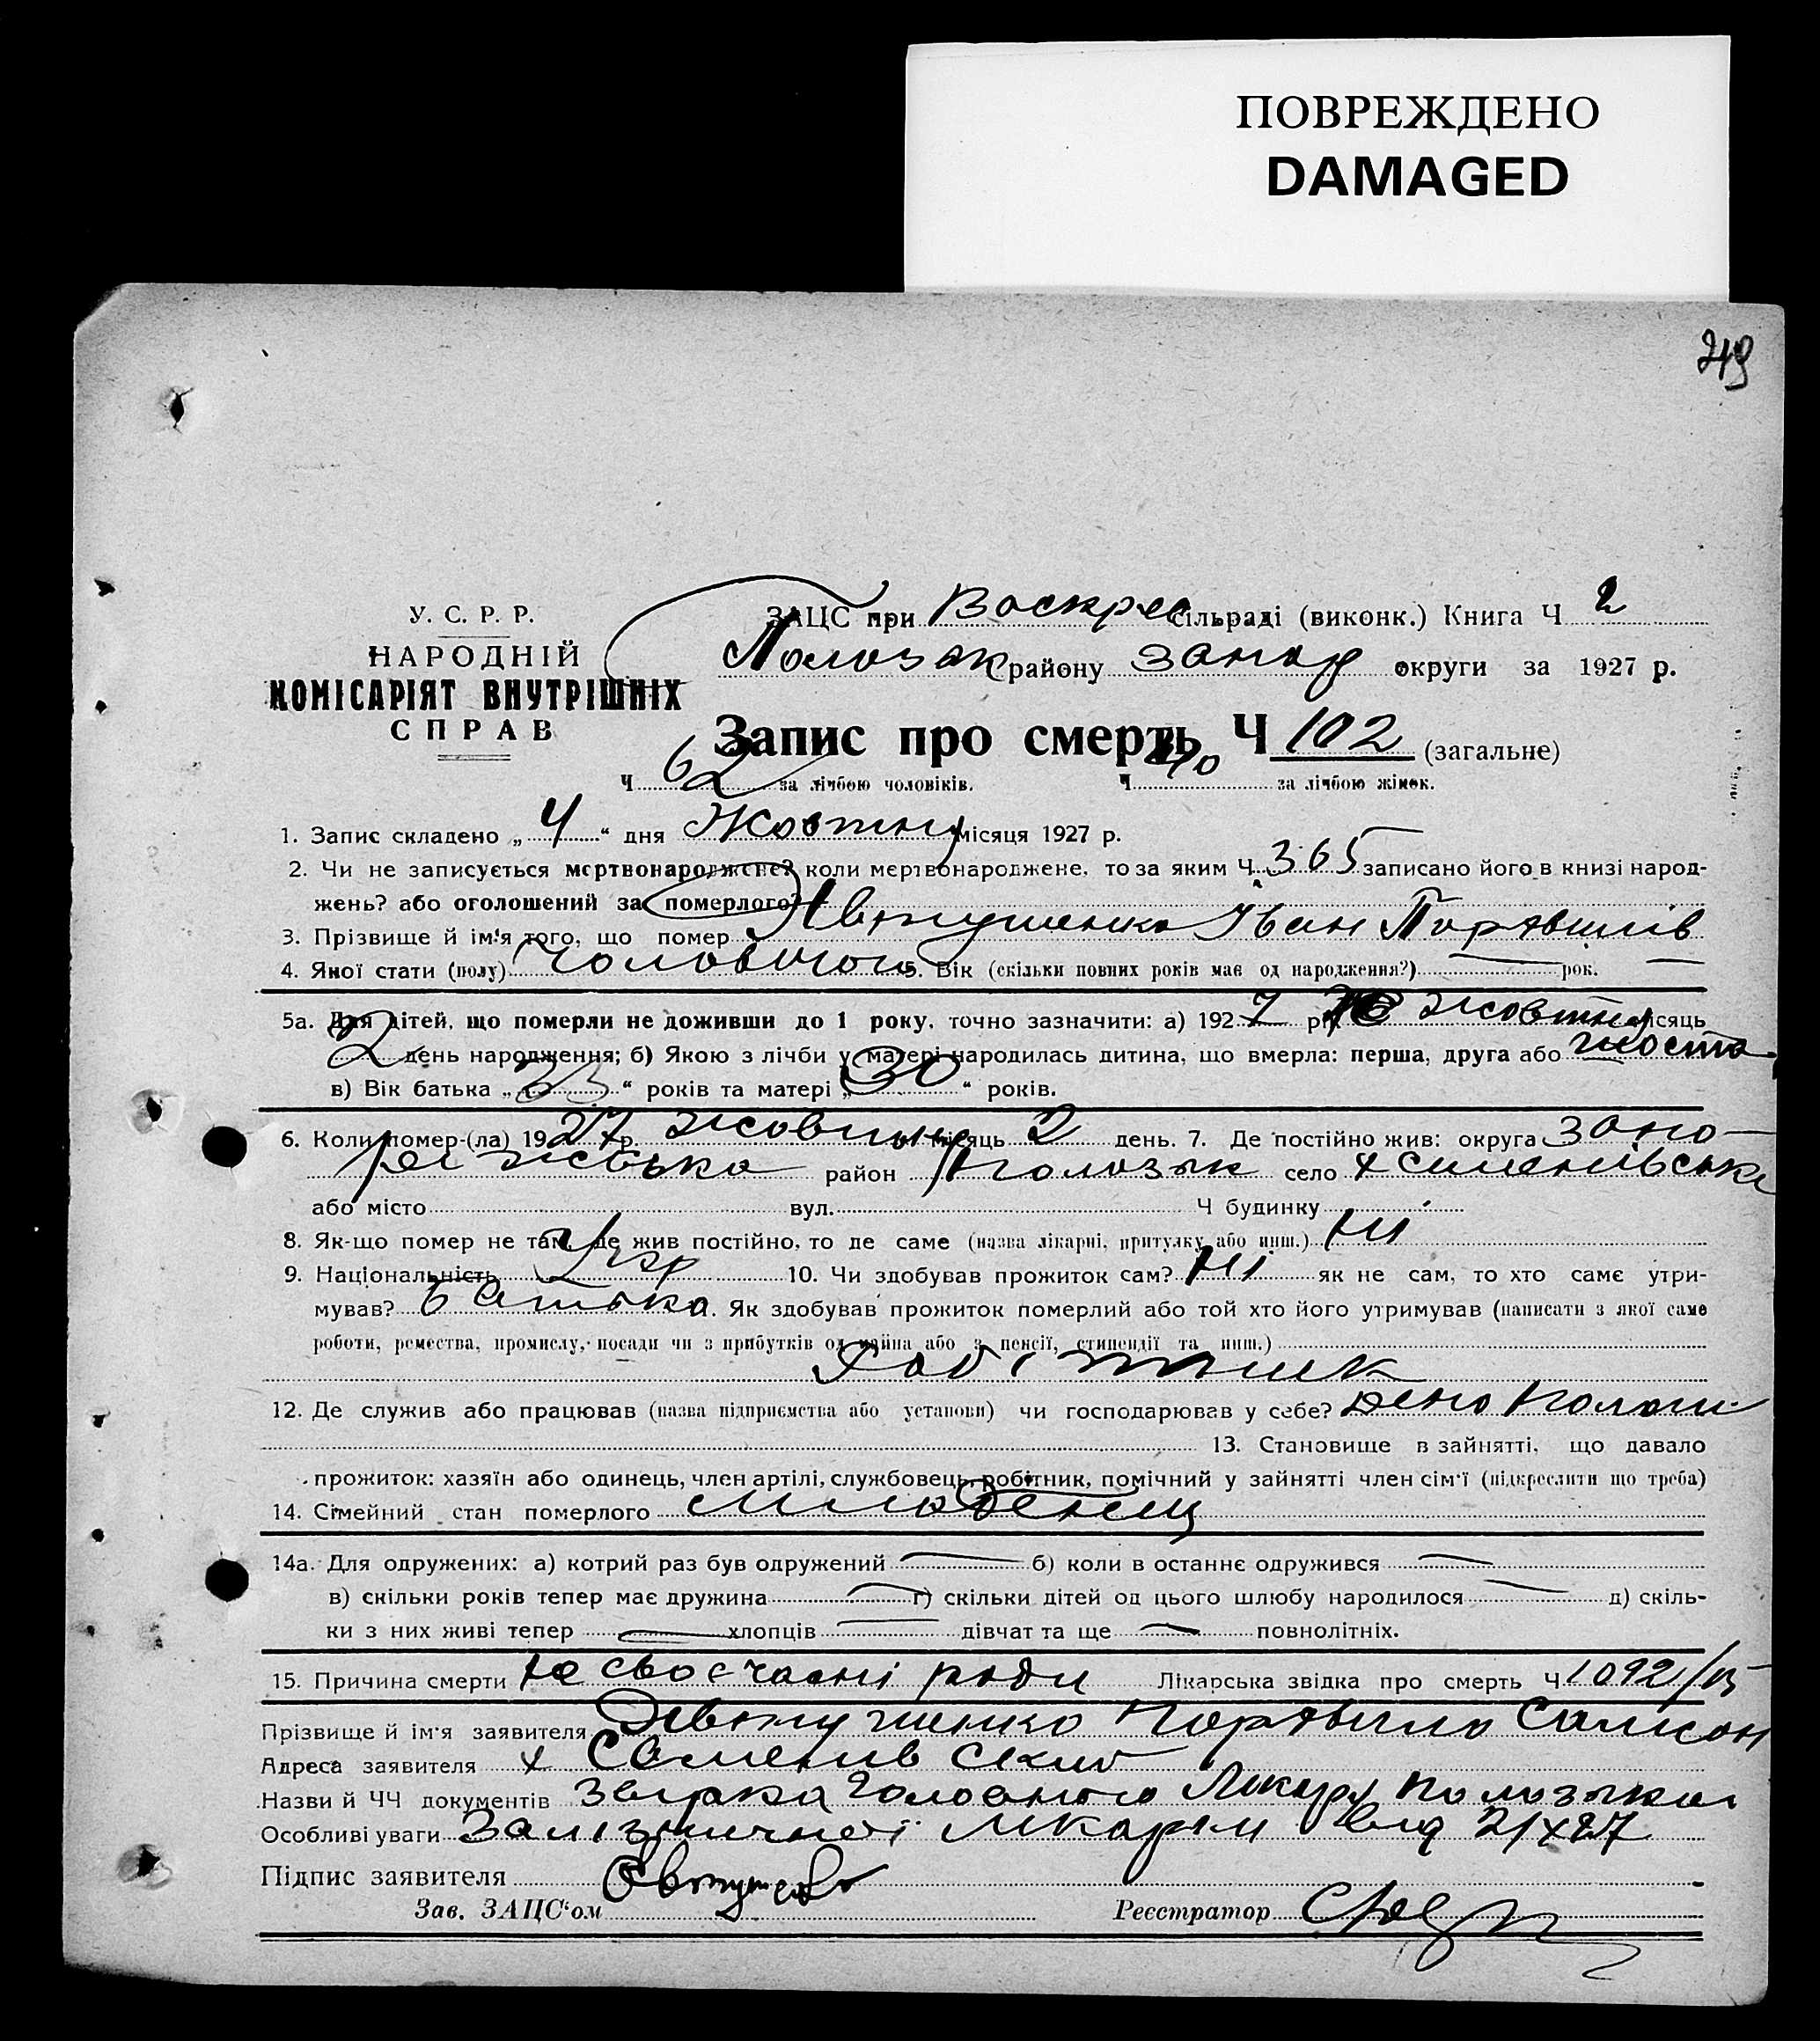 ПОВРЕЖДЕНО
DAMAGED
249
У. С. Р. Р.
НАРОДНІЙ
КОМІСАРІЯТ ВНУТРІШНІХ
СПРАВ
ЗАЦС при Воскрес сільраді (виконк.) Книга Ч 2
району Запор округи за 1927 р.
Запис про смерть Ч 102 (загальне)
Ч 62 за лічбою чоловіків. Ч 40 за лічбою жінок.
1. Запис складено „ 4 “ дня Жовтня місяця 1927 р.
2. Чи не записується мертвонароджене? коли мертвонароджене, то за яким Ч. 365 записано його в книзі народ-
жень? або оголошений за померлого?
3. Прізвище й ім'я того, що помер Євтушенко Іван
4. Якої стати (полу) чоловічого 5. Вік (скільки повних років має од народження?) — рок. —
5а. Для дітей, що померли не доживши до 1 року, точно зазначити: а) 192 7 рік жовтня місяць
2 день народження; б) Якою з лічби у матері народилась дитина, що вмерла: перша, друга або шоста
в) Вік батька „ 33 “ років та матері „ 30 “ років.
6. Коли помер-(ла) 19 27 р. жовтня місяць 2 день. 7. Де постійно жив: округа Запо-
ріжська район село х Семенівськи
або місто вул. Ч будинку
8. Як-що помер не там, де жив постійно, то де саме (назва лікарні, притулку або инш.) Ні
9. Національність Укр 10. Чи здобував прожиток сам? Ні як не сам, то хто саме утри-
мував? батько. Як здобував прожиток померлий або той хто його утримував (написати з якої саме
роботи, ремества, промислу, посади чи з прибутків од майна або з пенсії, стипендії та инш.)
робітник
12. Де служив або працював (назва підприємства або установи) чи господарював у себе? Депо Пологи
13. Становище в зайнятті, що давало
прожиток: хазяїн або одинець, член артілі, службовець, робітник, помічний у зайнятті член сім'ї (підкреслити що треба)
14. Сімейний стан померлого младенец
14а. Для одружених: а) котрий раз був одружений — б) коли в останнє одружився —
в) скільки років тепер має дружина — г) скільки дітей од цього шлюбу народилося — д) скіль-
ки з них живі тепер — хлопців — дівчат та ще — повнолітніх.
15. Причина смерти не своєчасні роди Лікарська звідка про смерть Ч 1092/15
Прізвище й ім'я заявителя Євтушенко Самсон
Адреса заявителя х Семенівский
Назви й ЧЧ документів Головного
Особливі уваги Залізничної Лікарні від 2/X 27
Підпис заявителя Євтушенко
Зав. ЗАЦС'ом Реєстратор